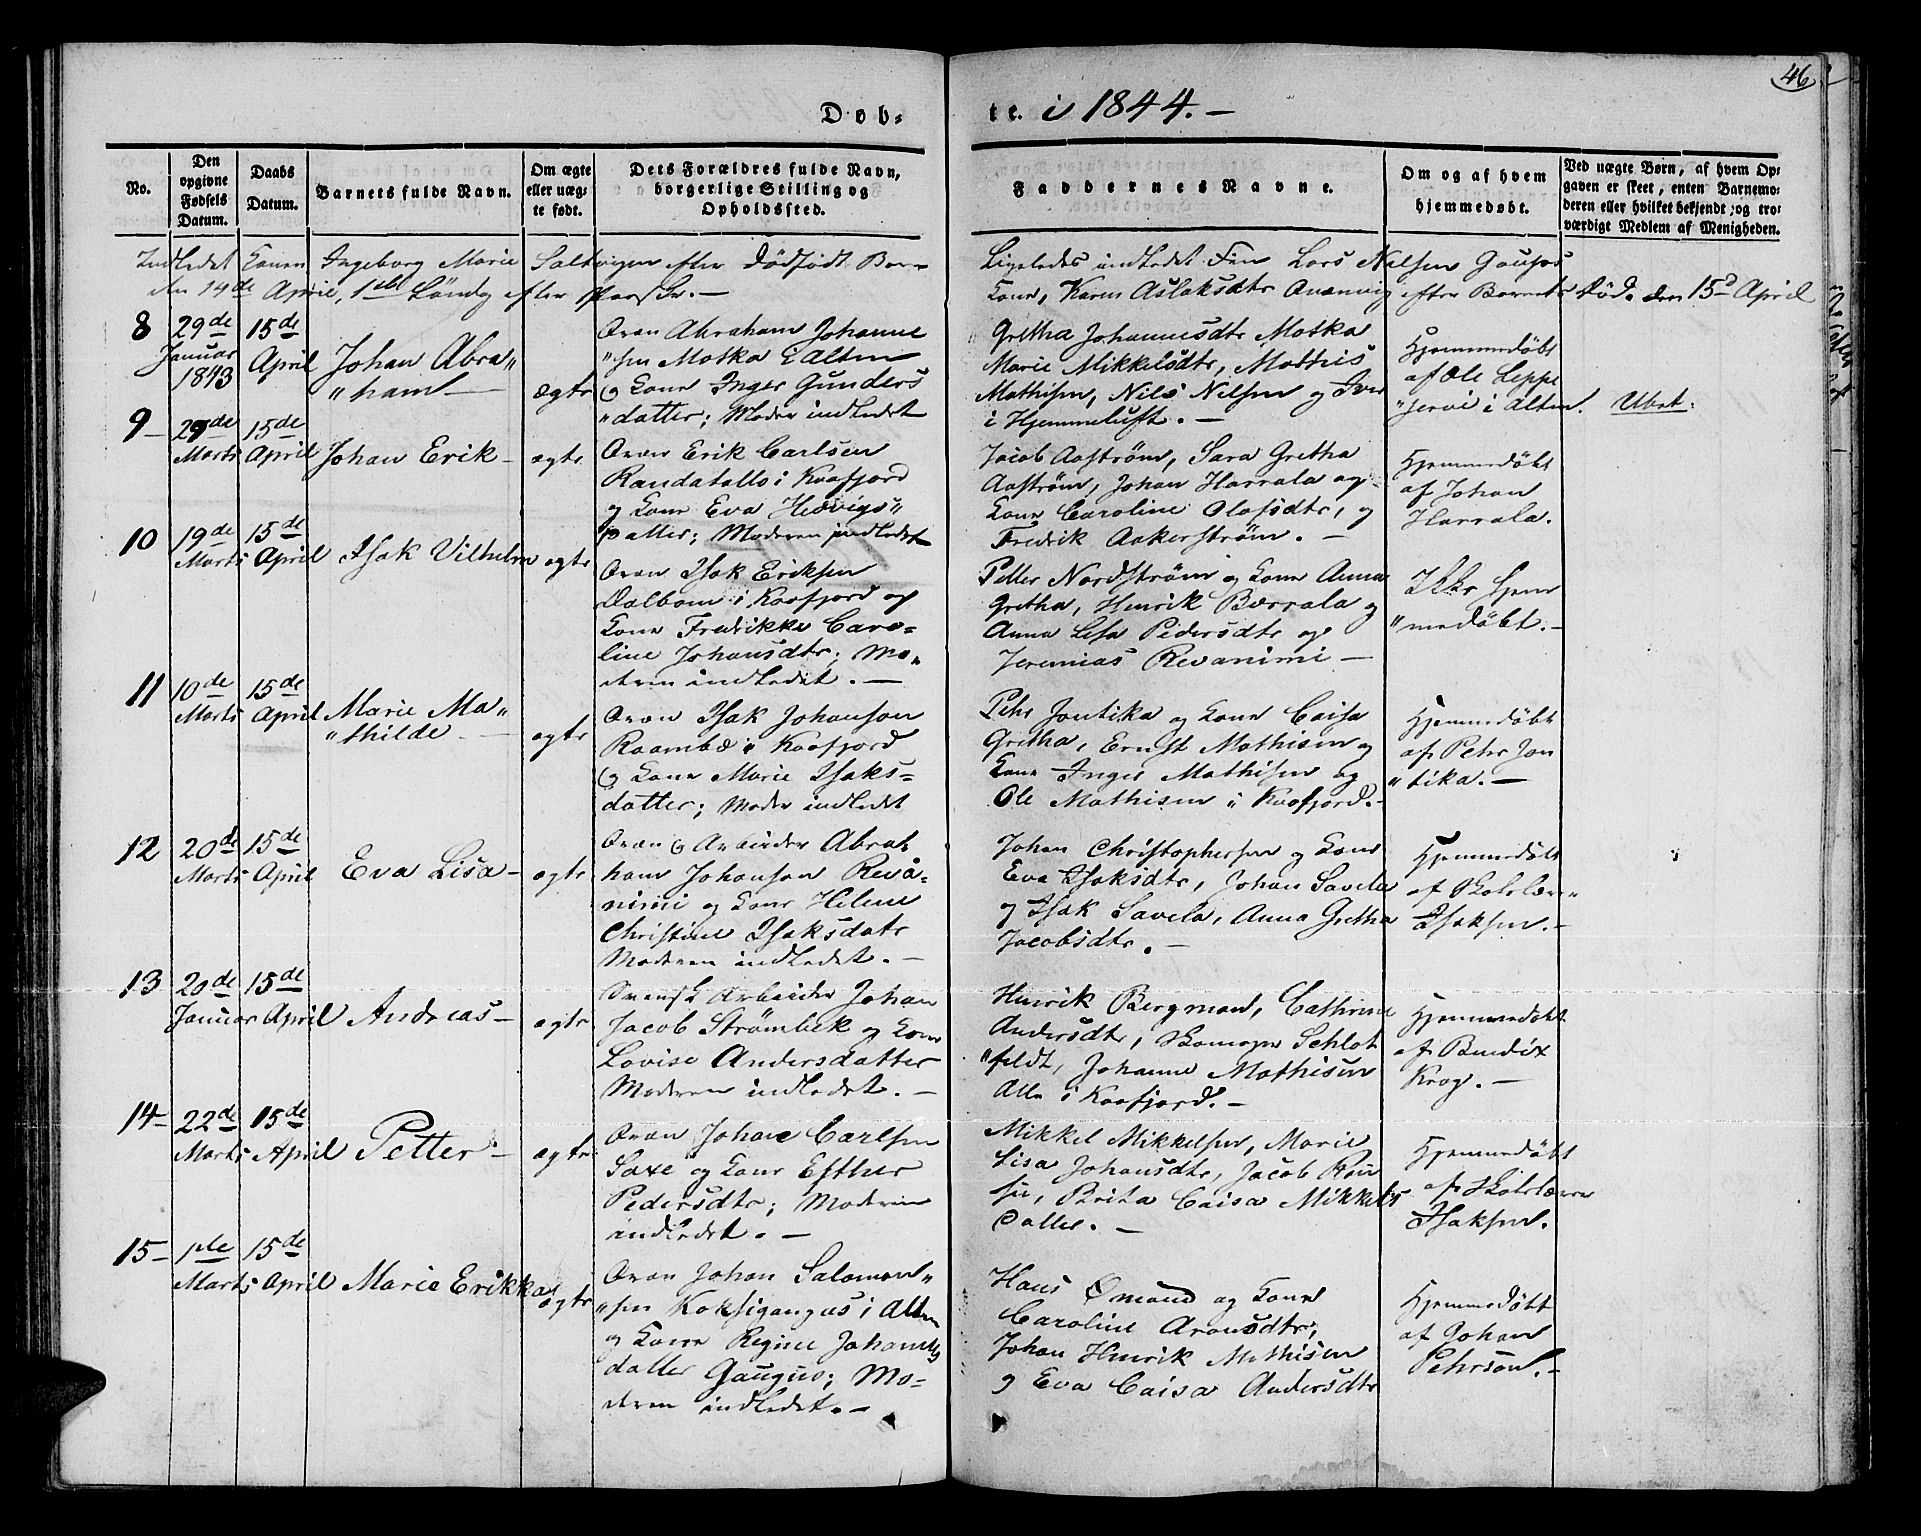 46
Døb-
te. i 1844.-
No.
Den opgivne Fødsels Datum.
Daabs Datum.
Barnets fulde Navn.
Om ægte eller uægte født.
Dets Forældres fulde Navn, borgerlige Stilling og Opholdssted.
Faddernes Navne.
Om og af hvem hjemmedøbt.
Ved uægte Børn, af hvem Opgaven er skeet, enten Barnemoderen eller hvilket bekjendt, og troværdigt Medlem af Menigheden.
Indledet Konen Ingeborg Marie efter dødfødt Barn
den 14de April, 1ste Søndag efter Paaske.-
Ligeledes indledet Lars Nilsen
Kone, Karen Aslaksdtr efter Barnets Død. den 15d April
8
29de Januar 1843
15de April
Johan Abra„
„ham -
ægte
Qvæn Abraham Johanne
„sen Motka i Alten
og Kone Inger Gunders
„datter; Moder indledet
Gretha Johannesdtr Motka
Marie Mikkelsdtr, Mathis
Mathisen, Nils Nilsen og Iver
i Hjemmeluft. -
Hjemmedøbt
af Ole Leppe
„jervi i Alten.
9 -
29de Marts
15de April
Johan Erik -
ægte
Qvæn Erik Carlsen
Randatallo i Kaafjord
og Kone Eva Hedvigs„
datter; Moderen indledet
Jacob Aaström, Sara Gretha
Aaström, Johan Harrala og
Kone Caroline Olafsdtr, og
Fredrik Aakerström. -
Hjemmedøbt
af Johan
Harrala.
10
19de Marts
15de April
Isak Vilhelm
ægte
Qvæn Isak Eriksen
Dalbom i Kaafjord og
Kone Fredrikke Caro=
line Johansdtr; Mo„
deren indledet. -
Petter Nordström og Kone Anna
Gretha, Henrik Barrala og
Anna Lisa Pedersdtr og
Jeremias Revanimi -
Ikke hjem
„medøbt. -
11
10de Marts
15de April
Marie Ma„
„thilde -
ægte
Qvæn Isak Johanson
i Kaafjord
og Kone Marie Isaks=
datter; Moder indledet
Pehr Jontika og Kone Caisa
Gretha, Ernst Mathisen og
Kone Inger Mathisen og
Ole Mathisen i Kaafjord. -
Hjemmedøbt
af Pehr Jon
„tika. -
12
20de Marts
15de April
Eva Lisa -
ægte
Qvæn og Arbeider Abra
ham Johanson Reva=
nimi og Kone Helene
Christine Isaksdatr
Moderen indledet. -
Johan Christophersen og Kone
Eva Isaksdtr, Johan Savela
og Isak Savela, Anna Gretha
Jacobsdtr. -
Hjemmedøbt
af Skolelærer
Isaksen. -
13
20de Januar
15de April
Andreas -
ægte
Svensk Arbeider Johan
Jacob Strömbek og Kone
Lovise Andersdatter
Moderen indledet. -
Henrik Bergman, Cathrine
Andersdtr, Skomager Schlot
„feldt, Johanne Mathisen
Alle i Kaafjord. -
Hjemmedøbt
af Bendix
Krog. -
14 -
22de Marts
15de April
Petter -
ægte
Qvæn Johan Carlsen
Saxe og Kone Esther
Pedersdtr; Moderen
indledet. -
Mikkel Mikkelsen, Marie
Lisa Johansdtr, Jacob
Brita Caisa Mikkels
datter. -
Hjemmedøbt
af Skolelærer
Isaksen.
15 -
1ste Marts
15de April
Marie Erikka
ægte
Qvæn Johan Salomon„
„sen Koksigangas i Alten
og Kone Regine Johannes
datter Gaugus; Mo=
deren indledet. -
Hans Ømand og Kone
Caroline Aronsdtr,
Johan Henrik Mathisen
og Eva Caisa Andersdtr
Hjemmedøbt
af Johan
Pehrson. -